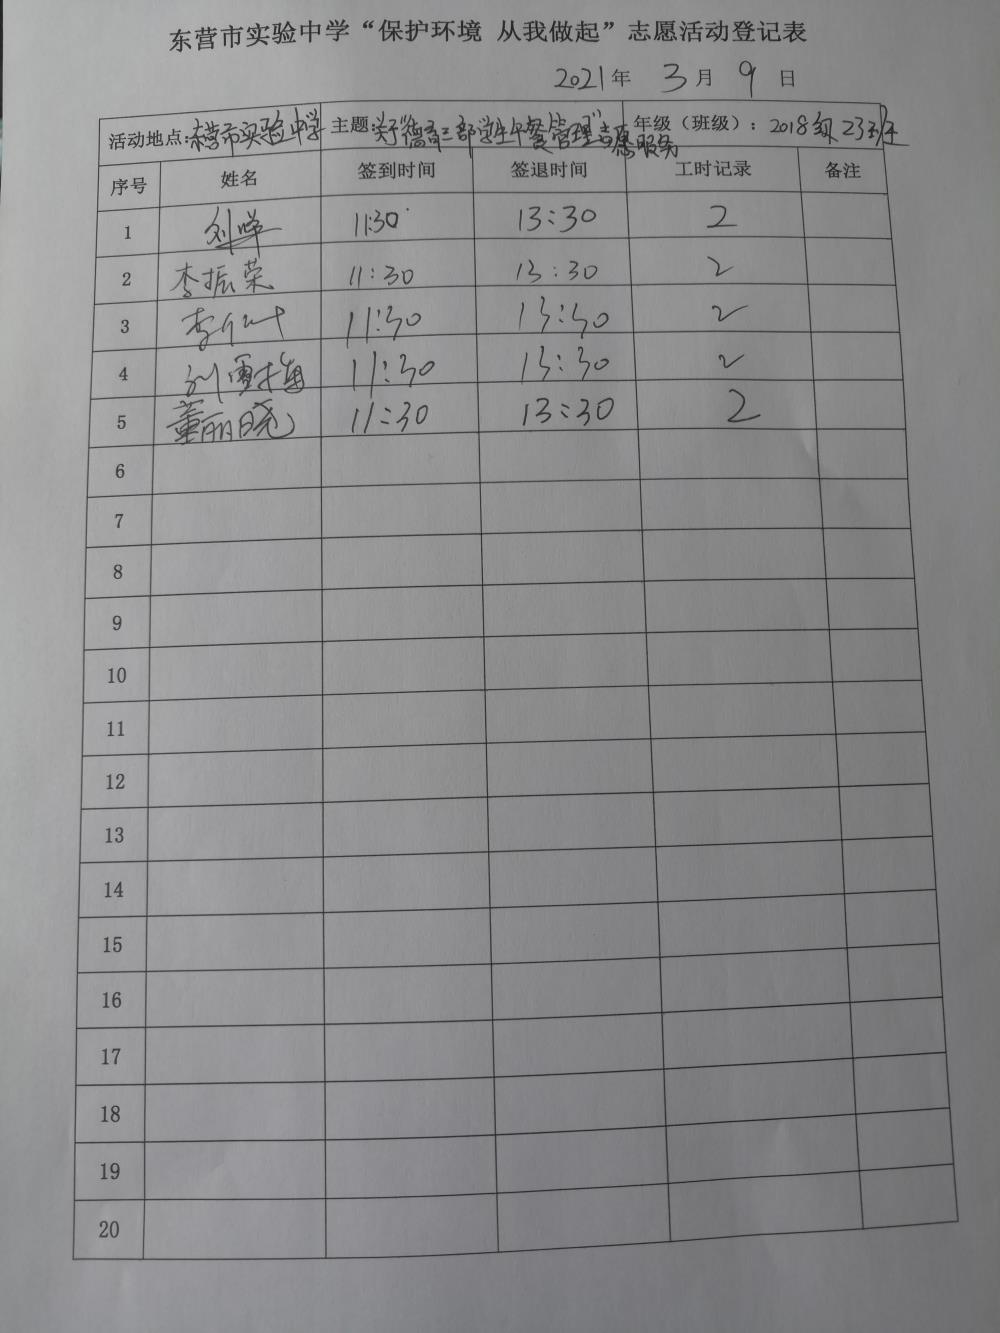 东营市实验中学“保护环境 从我做起”志愿活动登记表
2021年 3月 9日
活动地点:东营市实验中学 主题: 三部学生午餐管理志愿服务 年级（班级）：2018级23班
序号 姓名 签到时间 签退时间 工时记录 备注
1 刘 11:30 13:30 2
2 李振荣 11:30 13:30 2
3 李 11:30 13:30 2
4 刘雪梅 11:30 13:30 2
5 董丽晓 11:30 13:30 2
6
7
8
9
10
11
12
13
14
15
16
17
18
19
20